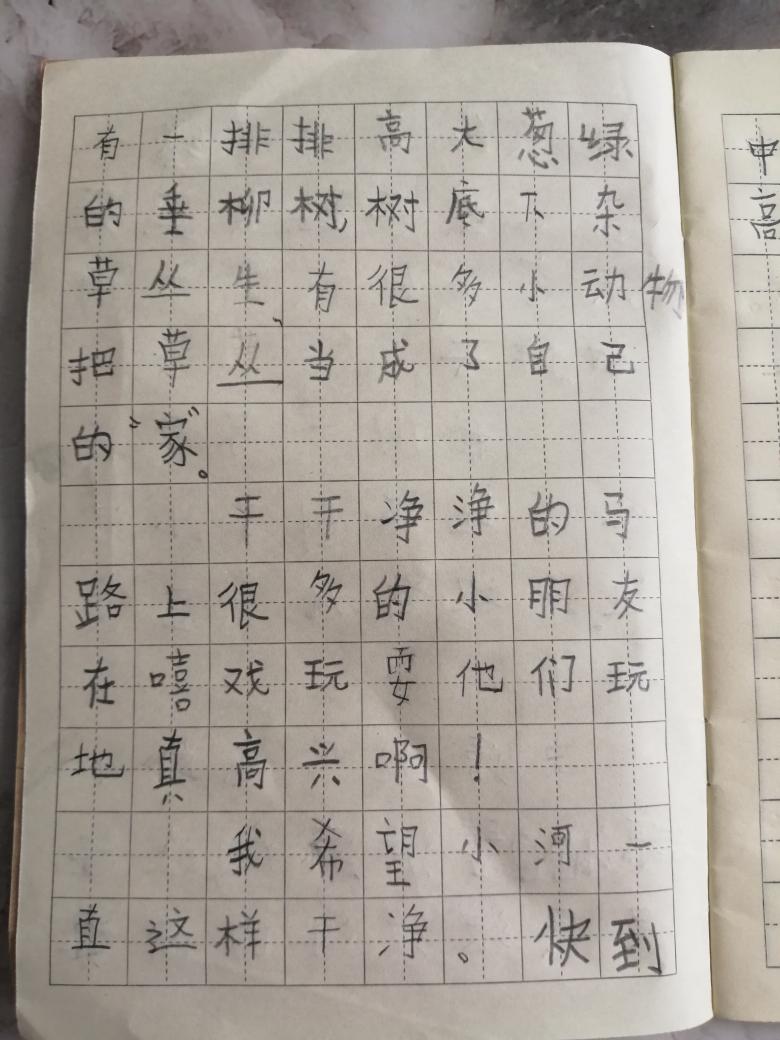 有一排排高大葱绿
的垂柳树,树底下杂
草丛生,有很多小动物
把草丛当成了自己
的“家”。
干干净净的马
路上很多的小朋友
在嘻戏玩耍他们玩
地真高兴啊!
我希望小河一
直这样干净。快到
中
高